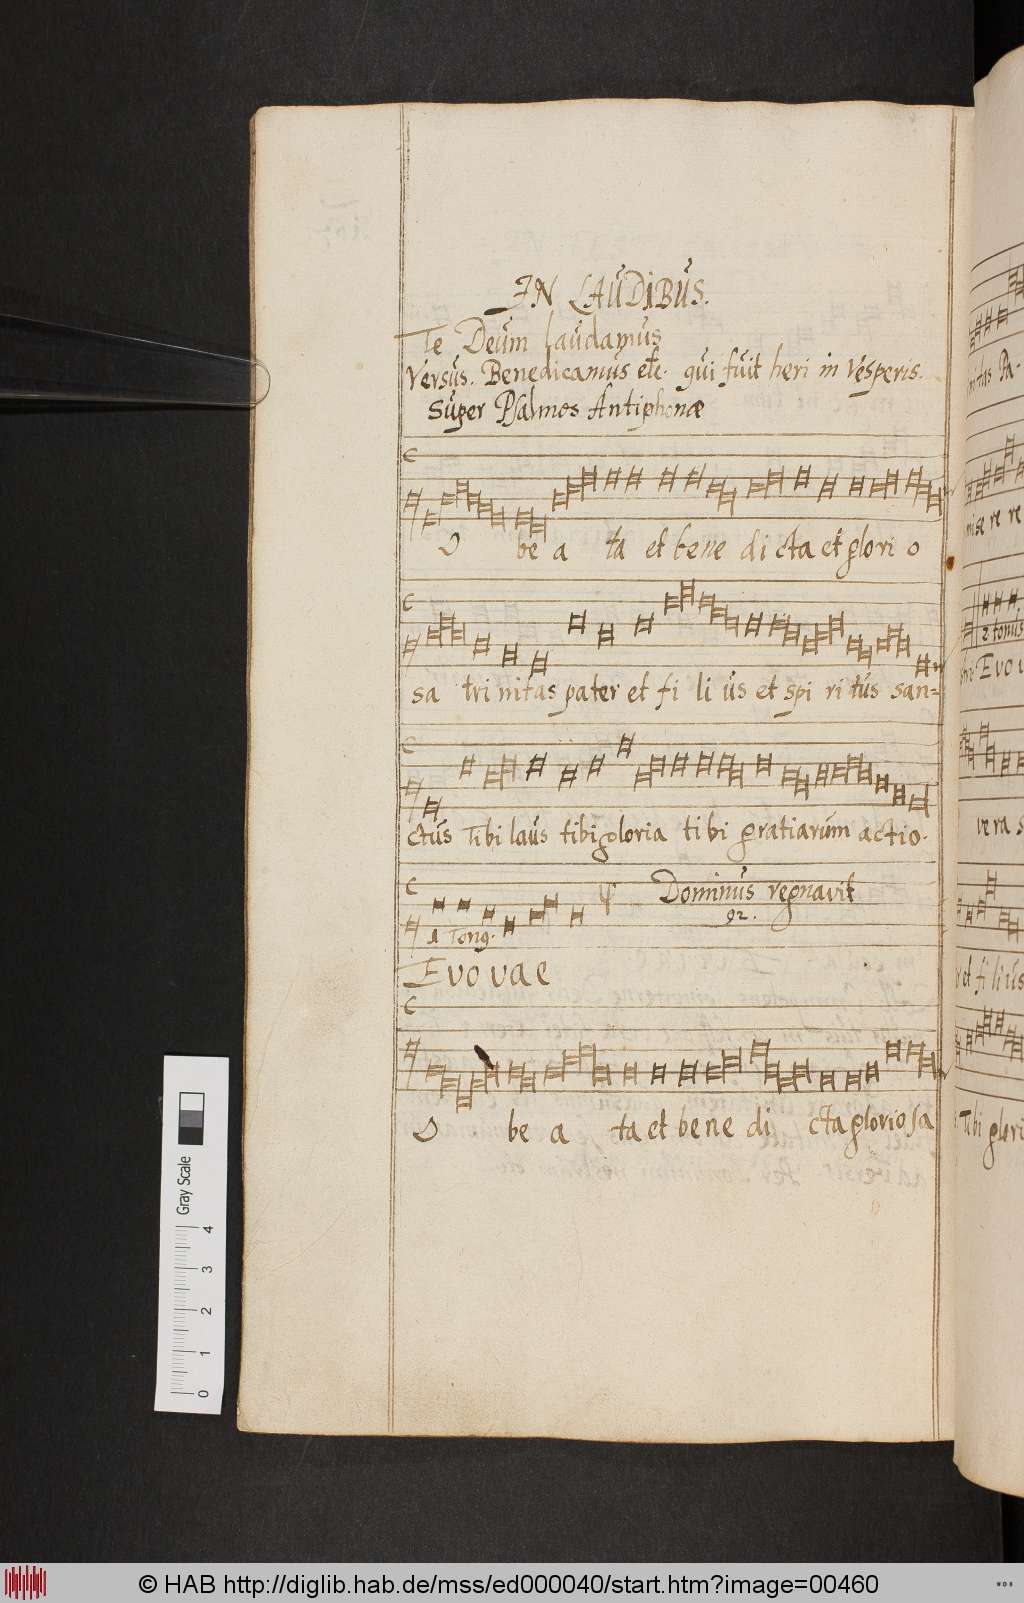 IN LAUDIBUS.
Te Deum laudamus
Versus. Benedicamus etc. qui fuit heri in Vesperis.
Super Psalmos Antiphonæ
O be a ta et bene di cta et glori o
sa tri nitas pater et fi li us et spi ri tus san=
ctus Tibi laus tibi gloria tibi gratiarum actio.
Dominus regnavit
92.
1 Tong.
Evovae
O be a ta et bene di cta gloriosa
nitas Pa-
mise re re
2 tonus
Evov
vera s
et fi lius
Tibi glori
Gray Scale
0 1 2 3 4
© HAB http://diglib.hab.de/mss/ed000040/start.htm?image=00460